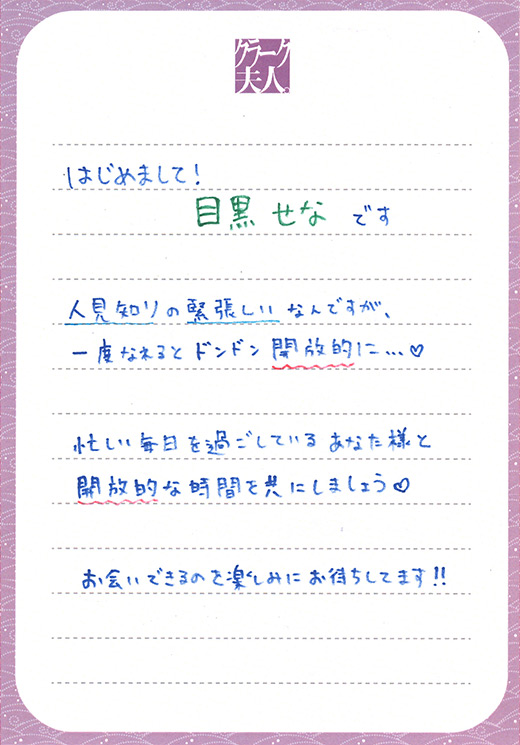 クラーク
夫人。
はじめまして!
目黒 せな です
人見知りの緊張しい なんですが、
一度なれると ドンドン 開放的に…♡
忙しい毎日を過ごしている あなた様と
開放的な時間を共にしましょう♡
お会いできるのを楽しみに お待ちしてます!!